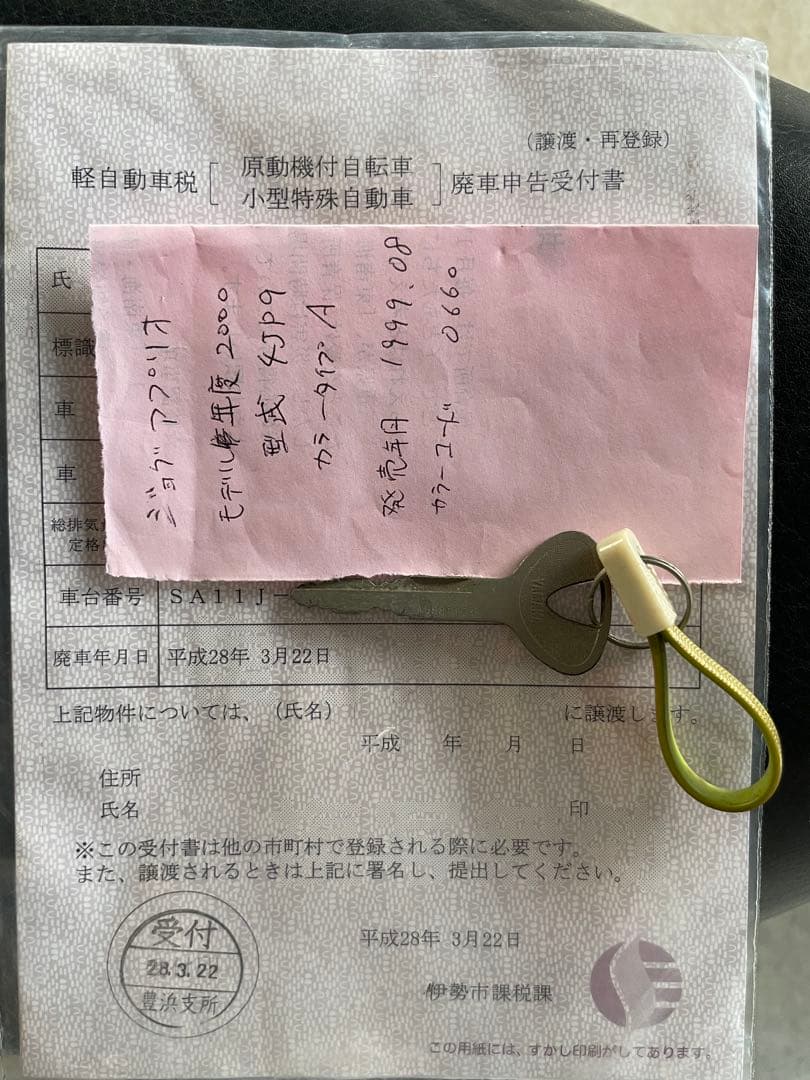 (譲渡・再登録)
軽自動車税[原動機付自転車 小型特殊自動車]廃車申告受付書
氏
標識
車
車
総排気
定格
ジョグアプリオ
モデル年度 2000
型式 4JP9
カラータイプ A
発売年月 1999.08
カラーコード 0660
車台番号 SA11J-
廃車年月日 平成28年 3月22日
上記物件については、(氏名) に譲渡します。
平成 年 月 日
住所
氏名 印
※この受付書は他の市町村で登録される際に必要です。
また、譲渡されるときは上記に署名し、提出してください。
受付
28.3.22
豊浜支所
平成28年 3月22日
伊勢市課税課
この用紙には、すかし印刷がしてあります。